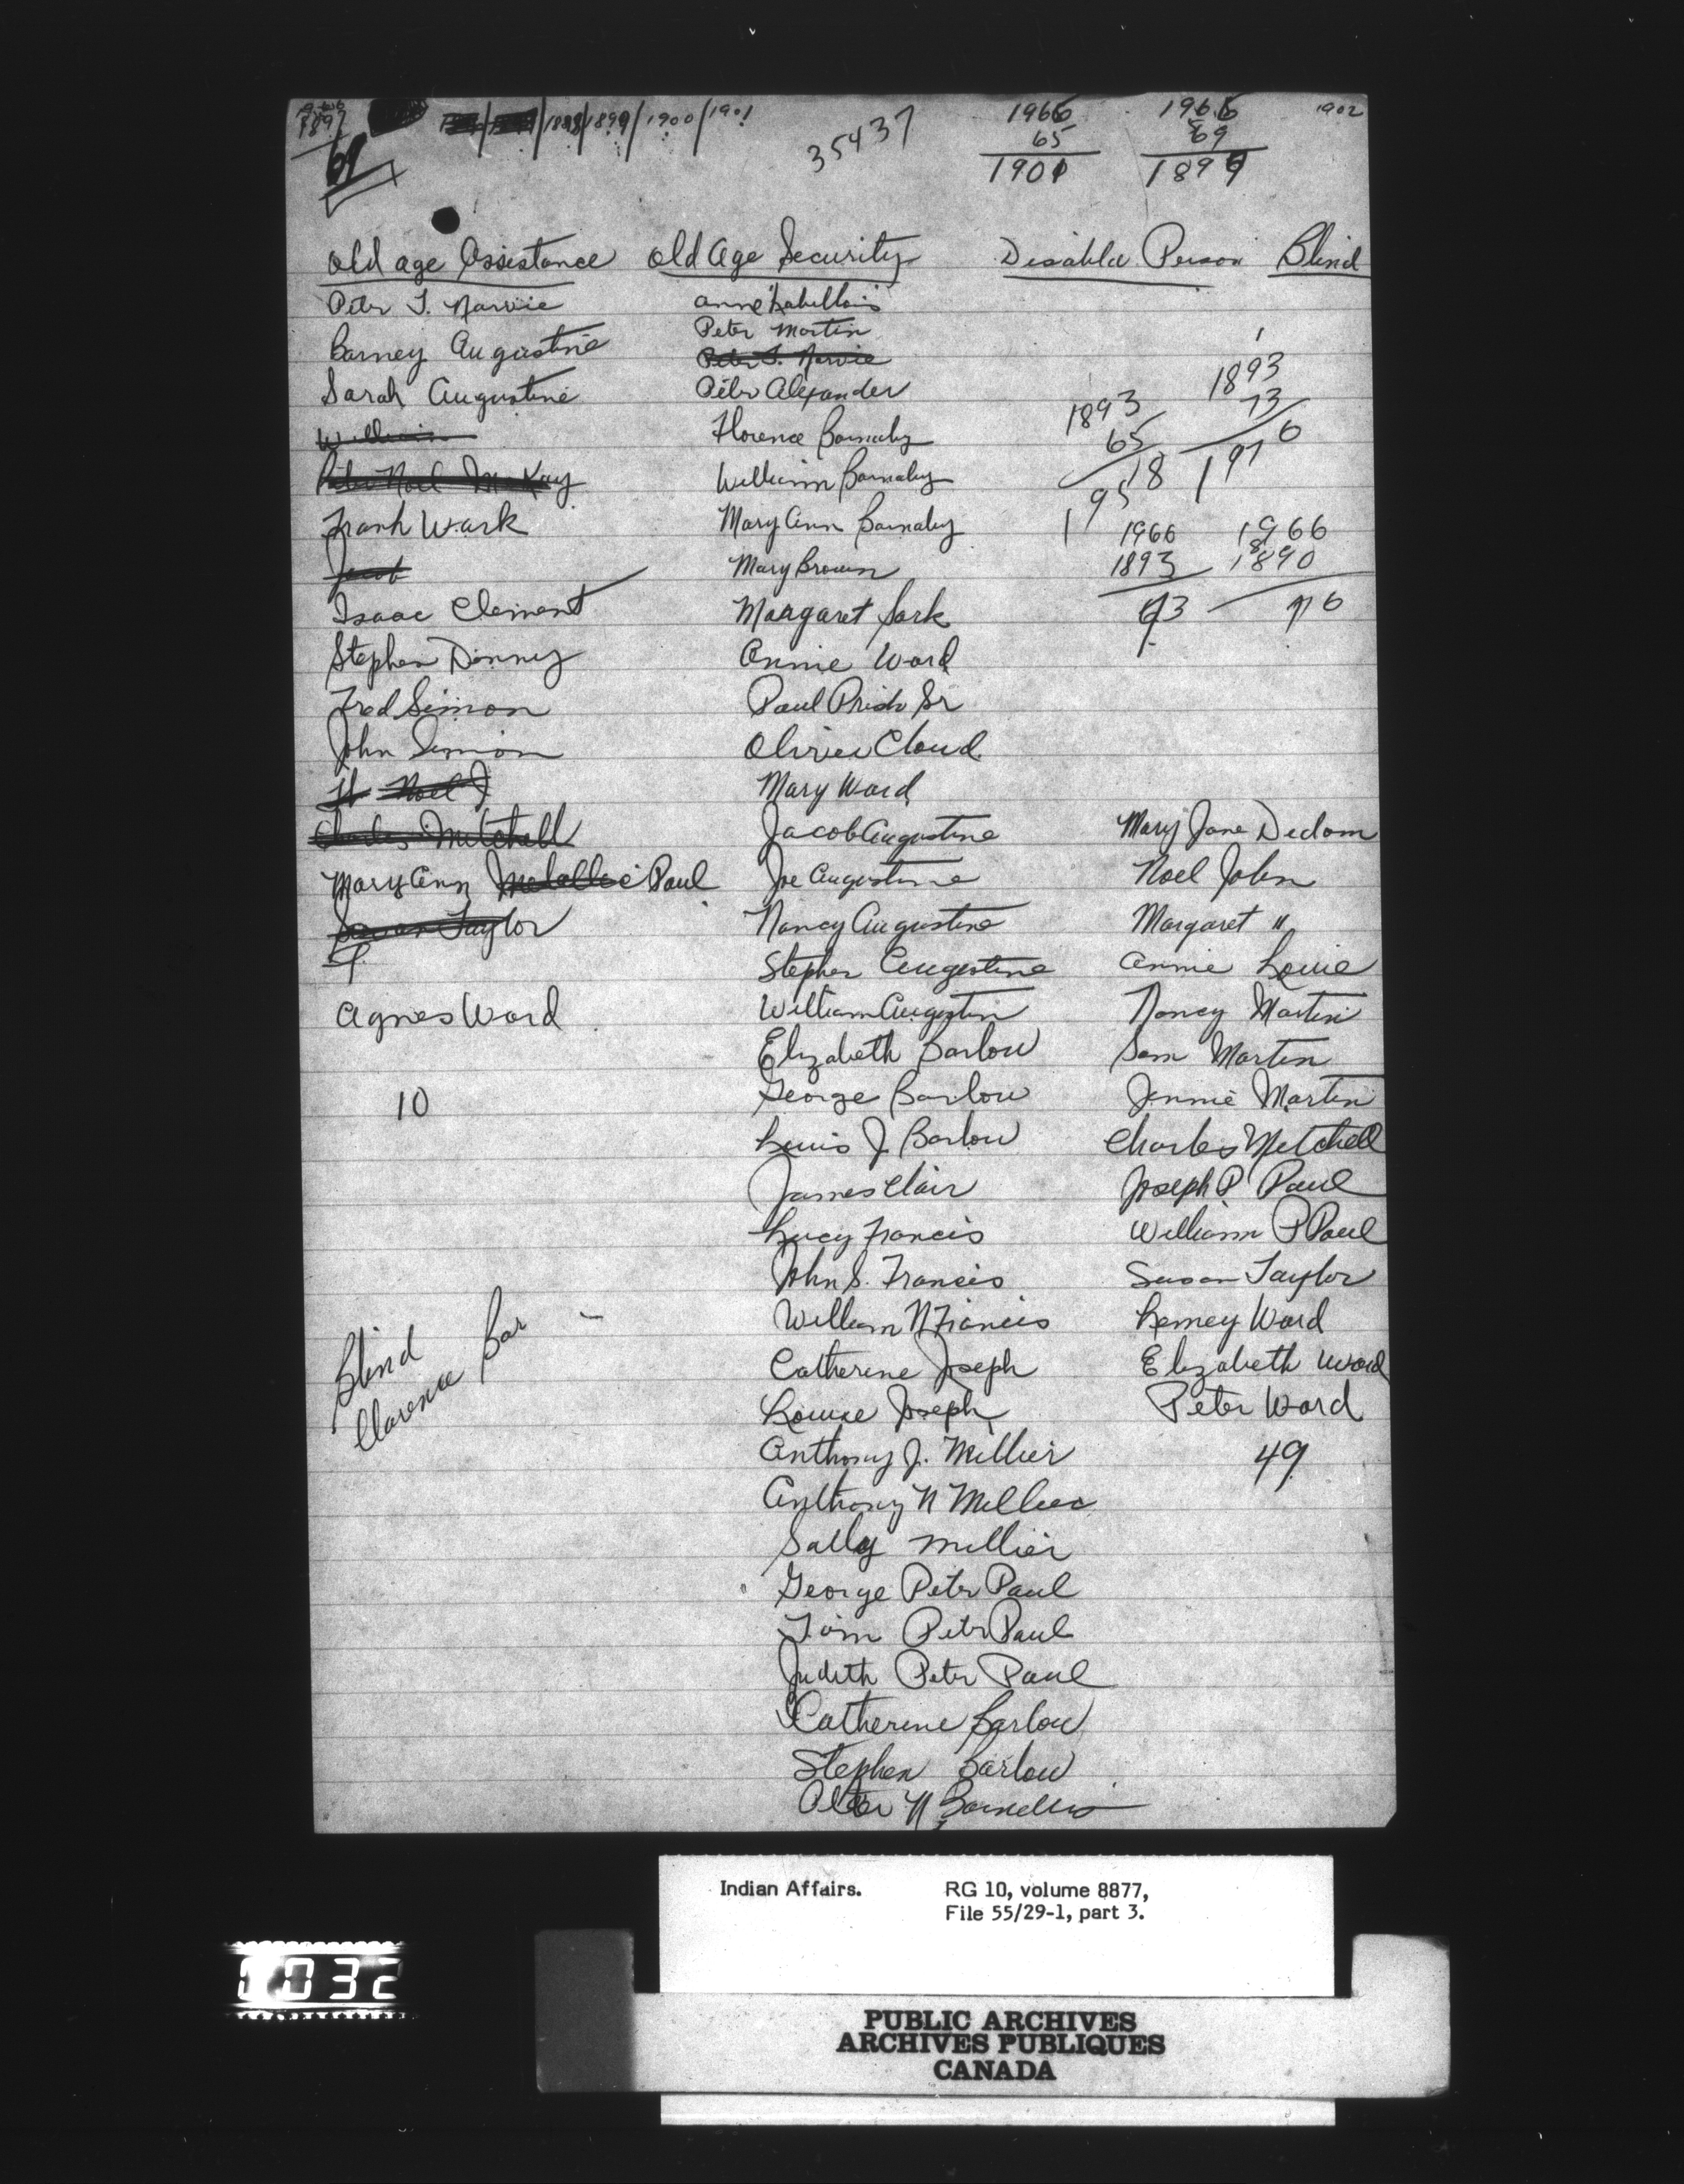 1897
69
1898/1899/1900/1901
35437
1966
65
1901
1966
69
1899
1902
Old age Assistance
Peter J. Narvie
Barney Augustine
Sarah Augustine
William
Peter Noel McKay
Frank Wark
Jacob
Isaac Clement
Stephen Denny
Fred Simon
John Simon
Noel J
Charles Mitchell
Mary Ann Metallic Paul
Susan Taylor
Agnes Ward
10
Blind
Clarence Bar
Old Age Security
Anne Labillois
Peter Martin
Peter J. Narvie
Peter Alexander
Florence Barnaby
William Barnaby
Mary Ann Barnaby
Mary Brown
Margaret Sark
Annie Ward
Paul Sr
Olivier Cloud
Mary Ward
Jacob Augustine
Joe Augustine
Nancy Augustine
Stephen Augustine
William Augustin
Elizabeth Barlow
George Barlow
Louis J Barlow
James Clair
Lucy Francis
John S. Francis
William N Francis
Catherine Joseph
Louise Joseph
Anthony J. Millier
Anthony N Millier
Sally Millier
George Peter Paul
Tom Peter Paul
Judith Peter Paul
Catherine Barlow
Stephen Barlow
Peter N
Disabled Person
Blind
1893
65
1958
1893
73
1966
1966
1893
73
1966
1890
76
Mary Jane Dedam
Noel John
Margaret "
Annie Louie
Nancy Martin
Sam Martin
Jennie Martin
Charles Mitchell
Joseph P Paul
William P Paul
Susan Taylor
Lemey Ward
Elizabeth Ward
Peter Ward
49
Indian Affairs.
RG 10, volume 8877,
File 55/29-1, part 3.
0032
PUBLIC ARCHIVES
ARCHIVES PUBLIQUES
CANADA